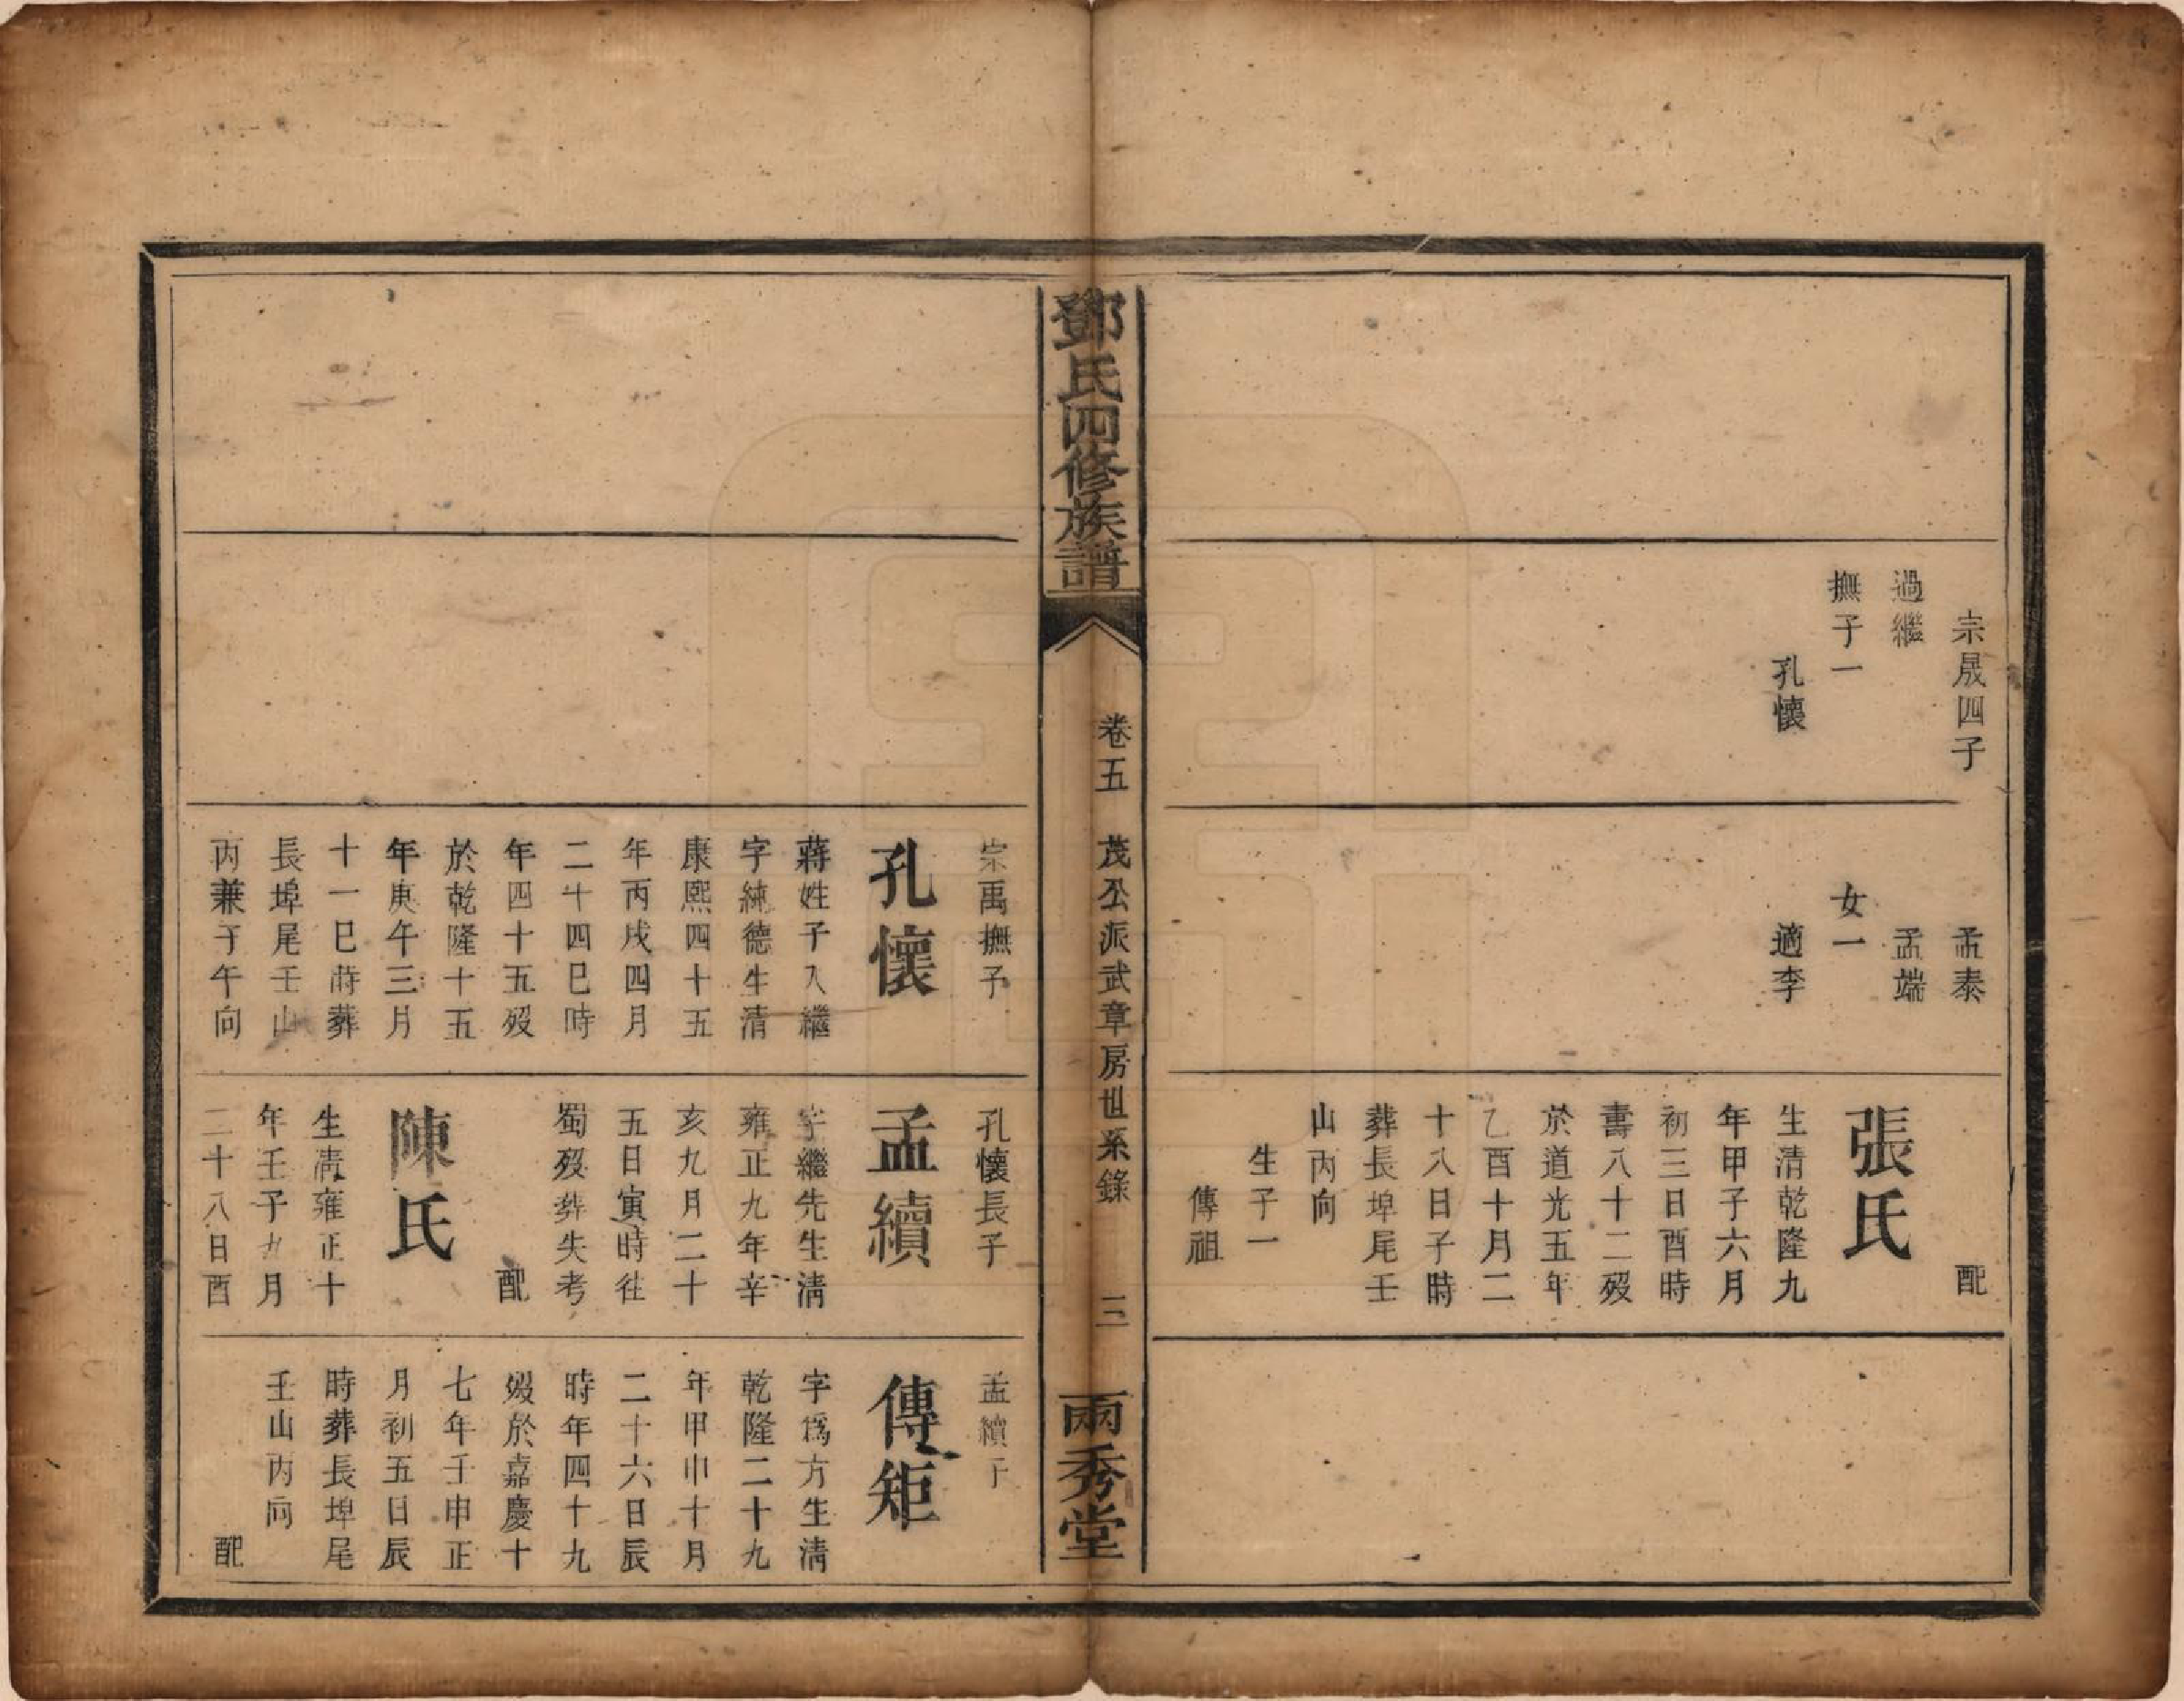 宗晟四子
過繼
撫子一
孔懷
孟泰
孟端
女一
適李
配
張氏
生清乾隆九
年甲子六月
初三日酉時
壽八十二歿
於道光五年
乙酉十月二
十八日子時
葬長埠尾壬
山丙向
生子一
傳祖
鄧氏四修族譜
卷五 茂公派武章房世系錄 三
兩秀堂
宗禹撫子
孔懷
蔣姓子入繼
字純德生清
康熙四十五
年丙戌四月
二十四巳時
年四十五歿
於乾隆十五
年庚午三月
十一巳時葬
長埠尾壬山
丙兼子午向
孔懷長子
孟續
字繼先生清
雍正九年辛
亥九月二十
五日寅時往
蜀歿葬失考
配
陳氏
生清雍正十
年壬子九月
二十八日酉
孟續子
傳矩
字為方生清
乾隆二十九
年甲申十月
二十六日辰
時年四十九
歿於嘉慶十
七年壬申正
月初五日辰
時葬長埠尾
壬山丙向
配